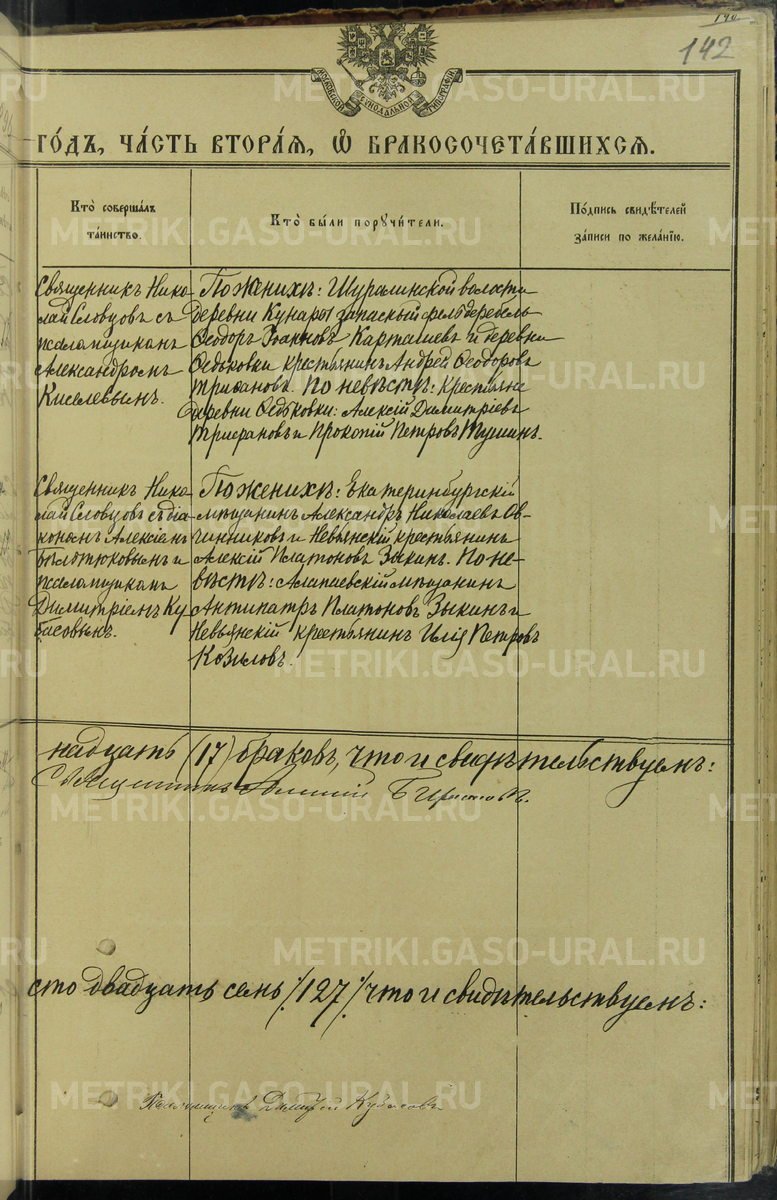 142
МОСКОВСКОЙ СѴНОДАЛЬНОЙ ТИПОГРАФІИ
ГО́ДЪ, ЧА́СТЬ ВТОРА́Я, Ѡ҆ БРАКОСОЧЕТА́ВШИХСЯ.
Кто̀ соверша́лъ
та́инство.
Кто̀ бы́ли поручи́тели.
По́дпись свидѣ́телей
за́писи по жела́нїю.
Священникъ Нико-
лай Словцовъ съ
псаломщикомъ
Александромъ
Киселевымъ.
По женихѣ: Шуралинской волости
деревни Кунары запасный фельдфебель
Ѳеодоръ Іоанновъ Карташевъ и деревни
Ѳедьковки крестьянинъ Андрей Ѳеодоровъ
Трифановъ. По невѣстѣ: крестьяне
деревни Ѳедьковки: Алексій Димитріевъ
Трифановъ и Прокопій Петровъ Тушинъ.
Священникъ Нико-
лай Словцовъ съ діа-
кономъ Алексіемъ
и
псаломщикомъ
Димитріемъ Ку-
басовымъ.
По женихѣ: Екатеринбургскій
мѣщанинъ Александръ Николаевъ Ов-
чинниковъ и Невьянскій крестьянинъ
Алексій Платоновъ Зыкинъ. По не-
вѣстѣ: Алапаевскій мѣщанинъ
Антипатръ Платоновъ Зыкинъ и
Невьянскій крестьянинъ Илія Петровъ
Козиловъ.
надцать (17) браковъ, что и свидѣтельствуемъ:
Священникъ
сто двадцать семь /127/ что и свидѣтельствуемъ:
Псаломщикъ Димитрій Кубасовъ
METRIKI.GASO-URAL.RU